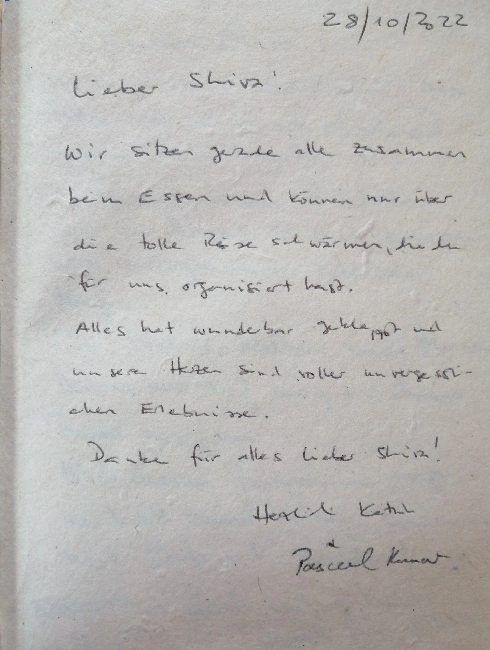 28/10/2022
Lieber Shiva!
Wir sitzen gerade alle zusammen
beim Essen und können nur über
die tolle Reise schwärmen, die du
für uns organisiert hast.
Alles hat wunderbar geklappt und
unsere Herzen sind voller unvergessli-
chen Erlebnisse.
Danke für alles lieber Shiva!
Herzlich
& Pascal